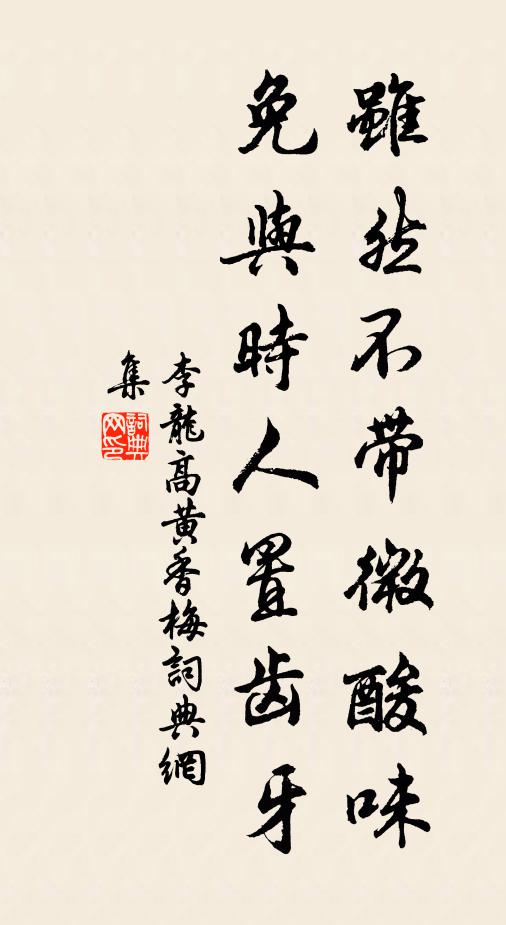 雖然不帶微酸味
免與時人置齒牙
李龍高黃香梅詞典網
集
詞典網印